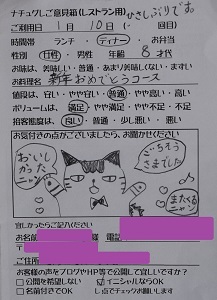 ナチュグしご意見箱(レストラン用) ひさしぶりです。
ご利用日 1月10日( 回目)
時間帯 ランチ・ディナー・お弁当
性別 女性・男性 年齢 8才代
お味は、美味しい・普通・あまり美味しくない・まずい
お料理名 新年おめでとうコース
値段は、安い・やや安い・普通・やや高い・高い
ボリュームは、満足・やや満足・やや不足・不足
接客態度は、良い・普通・少し悪い・悪い
お気付きの点がございましたら、お聞かせください
おいしかったニャン
ごちそうさまでした
またくるニャン
宜しかったらご記入ください
お名前 様 電話
〒
ご住所
お客様の声をブログやHP等で公開して宜しいですか?
□公開を希望しない ☑イニシャルならOK
□名前付きでOK し点でチェックお願いします